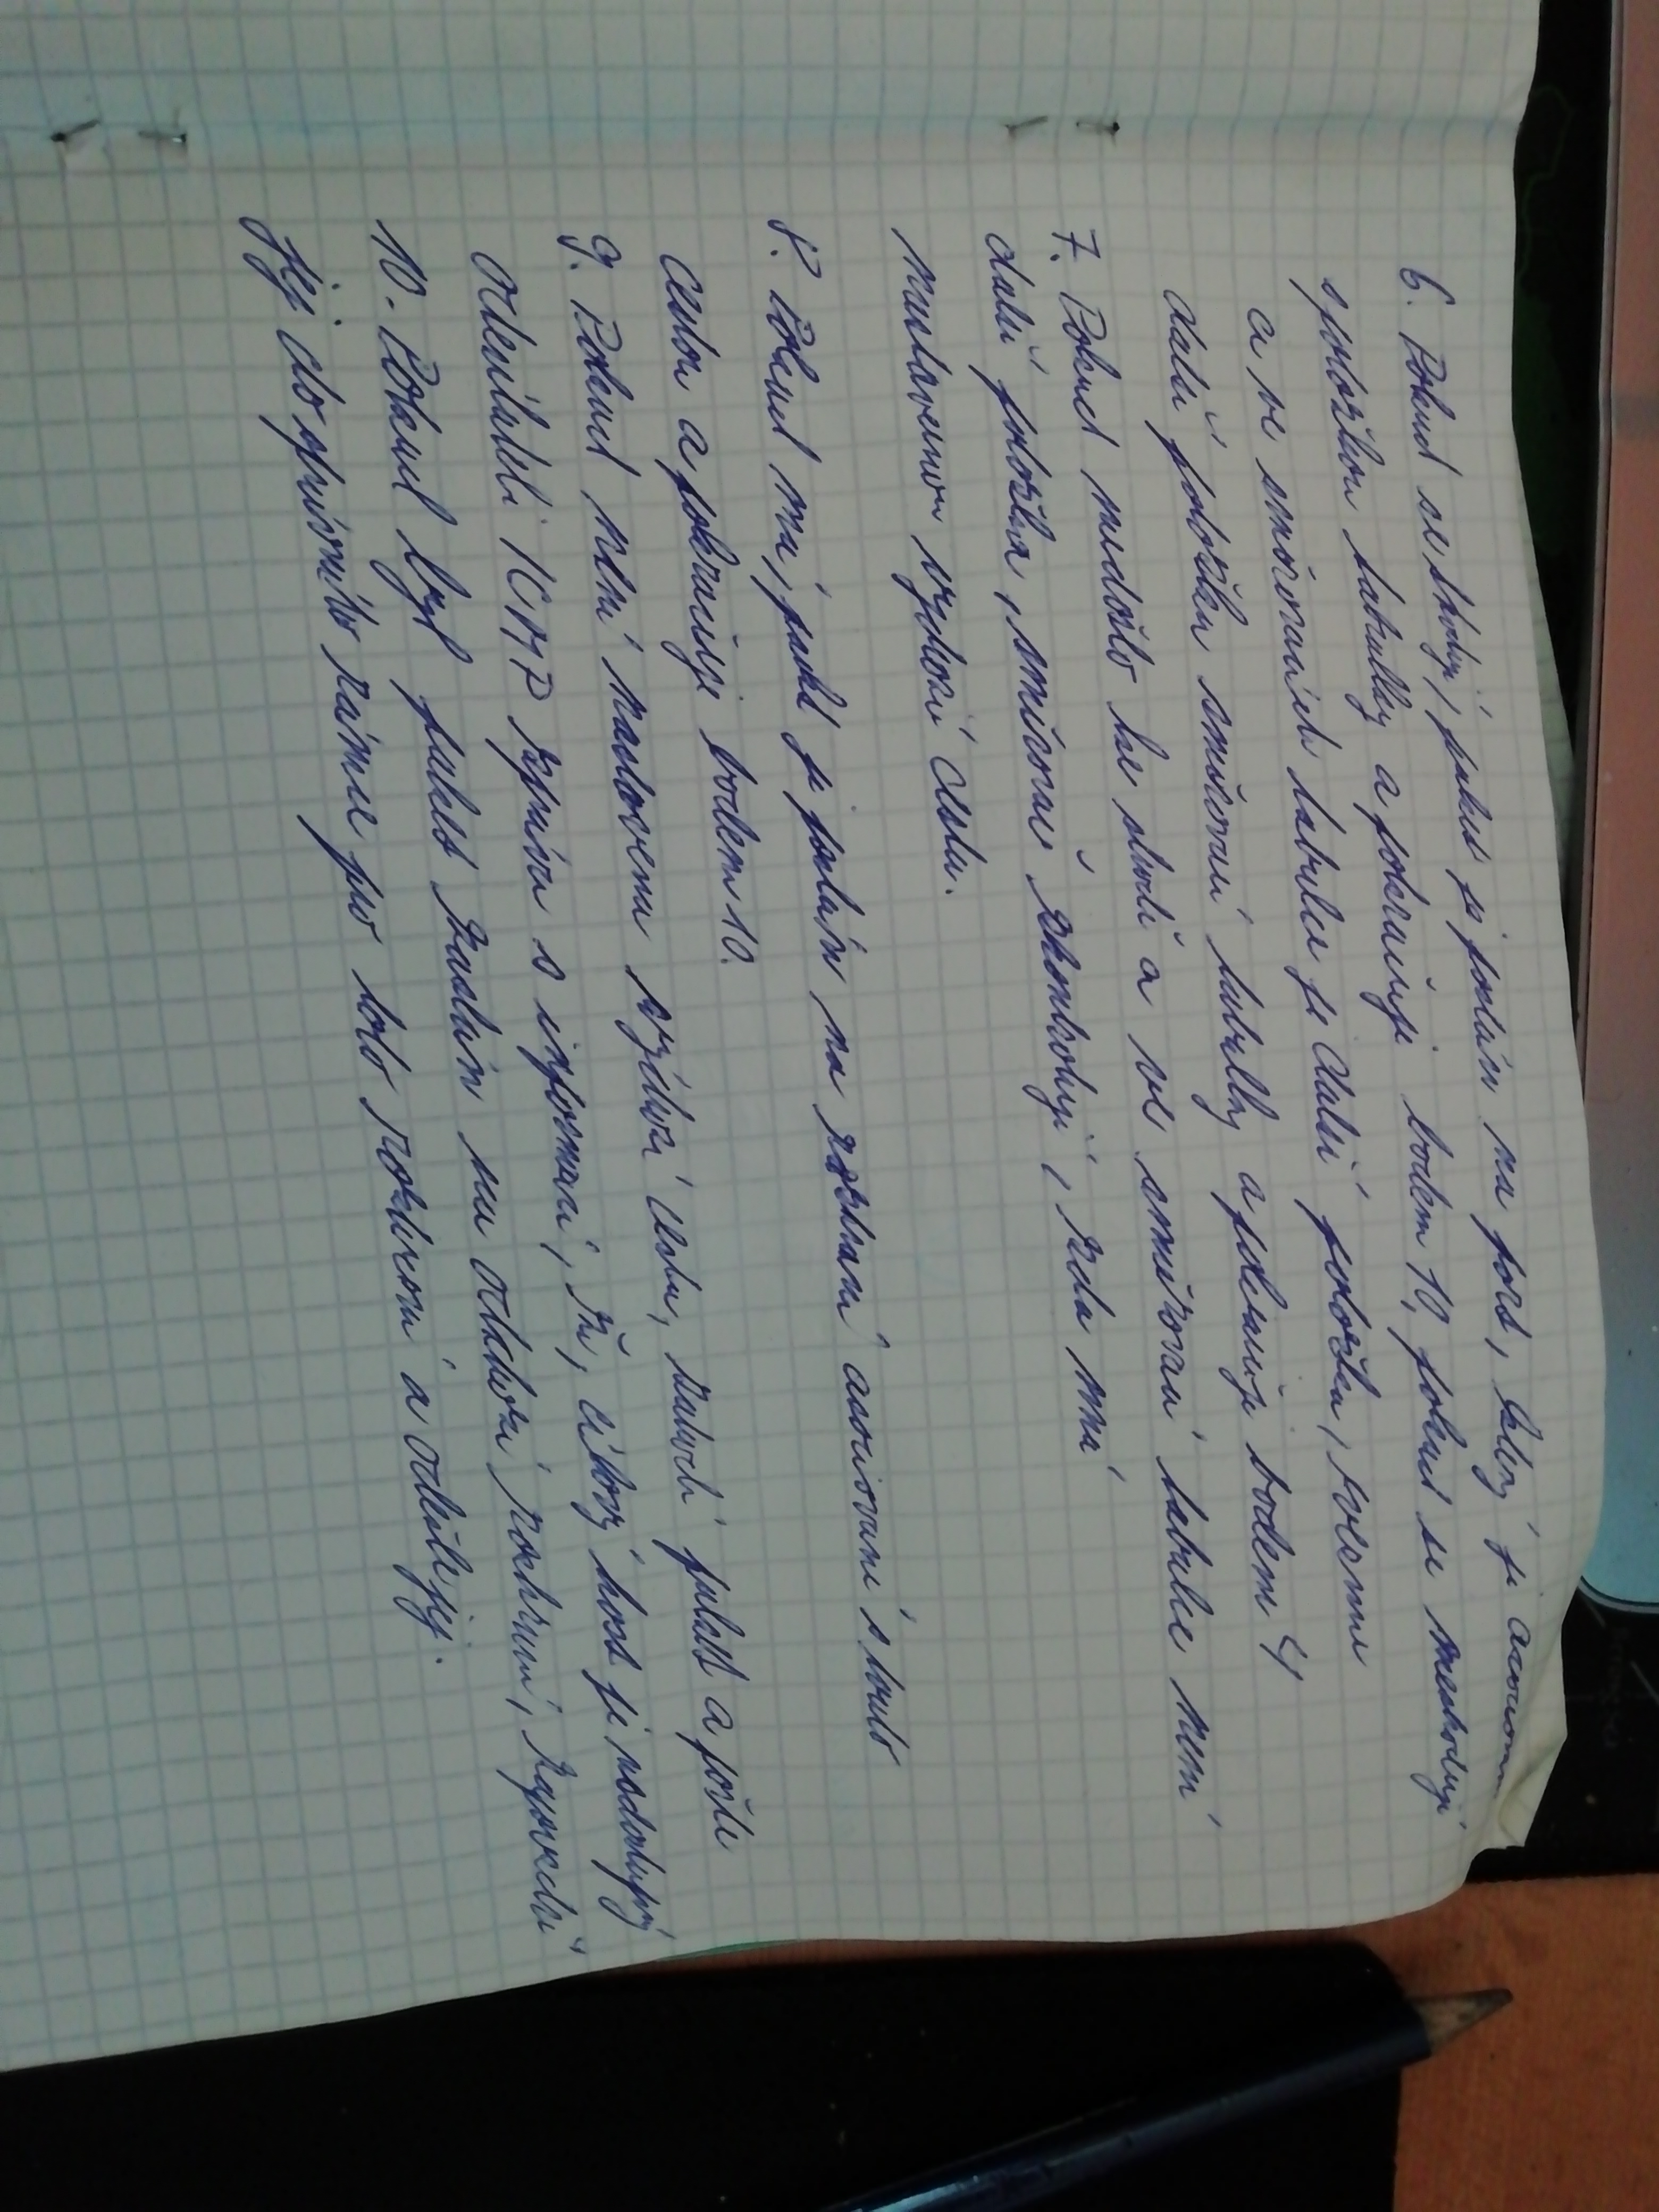 6. Pokud se shodují, paket je poslán na port, který je
s položkou tabulky a pokračuje bodem 10, pokud se neshodují
a ve směrovacích tabulce je další položka, vezme
další položku směrovací tabulky a pokračuje bodem 4
7. Pokud nedošlo ke shodě a ve směrovací tabulce není
další položka, směrovač zkontrolují, zda má
nastavenou výchozí cestu.
8. Pokud má, paket je poslán na rozhraní asociované s touto
cestou a pokračuje bodem 10.
9. Pokud není nastavena výchozí cesta, zahodí paket a pošle
odesílateli ICMP zprávu s informací, že, cílový host je nedostupný
10. Pokud byl paket zaslán na odchozí rozhraní, zapouzdří
jej do správného rámce pro toto rozhraní a odešle jej.